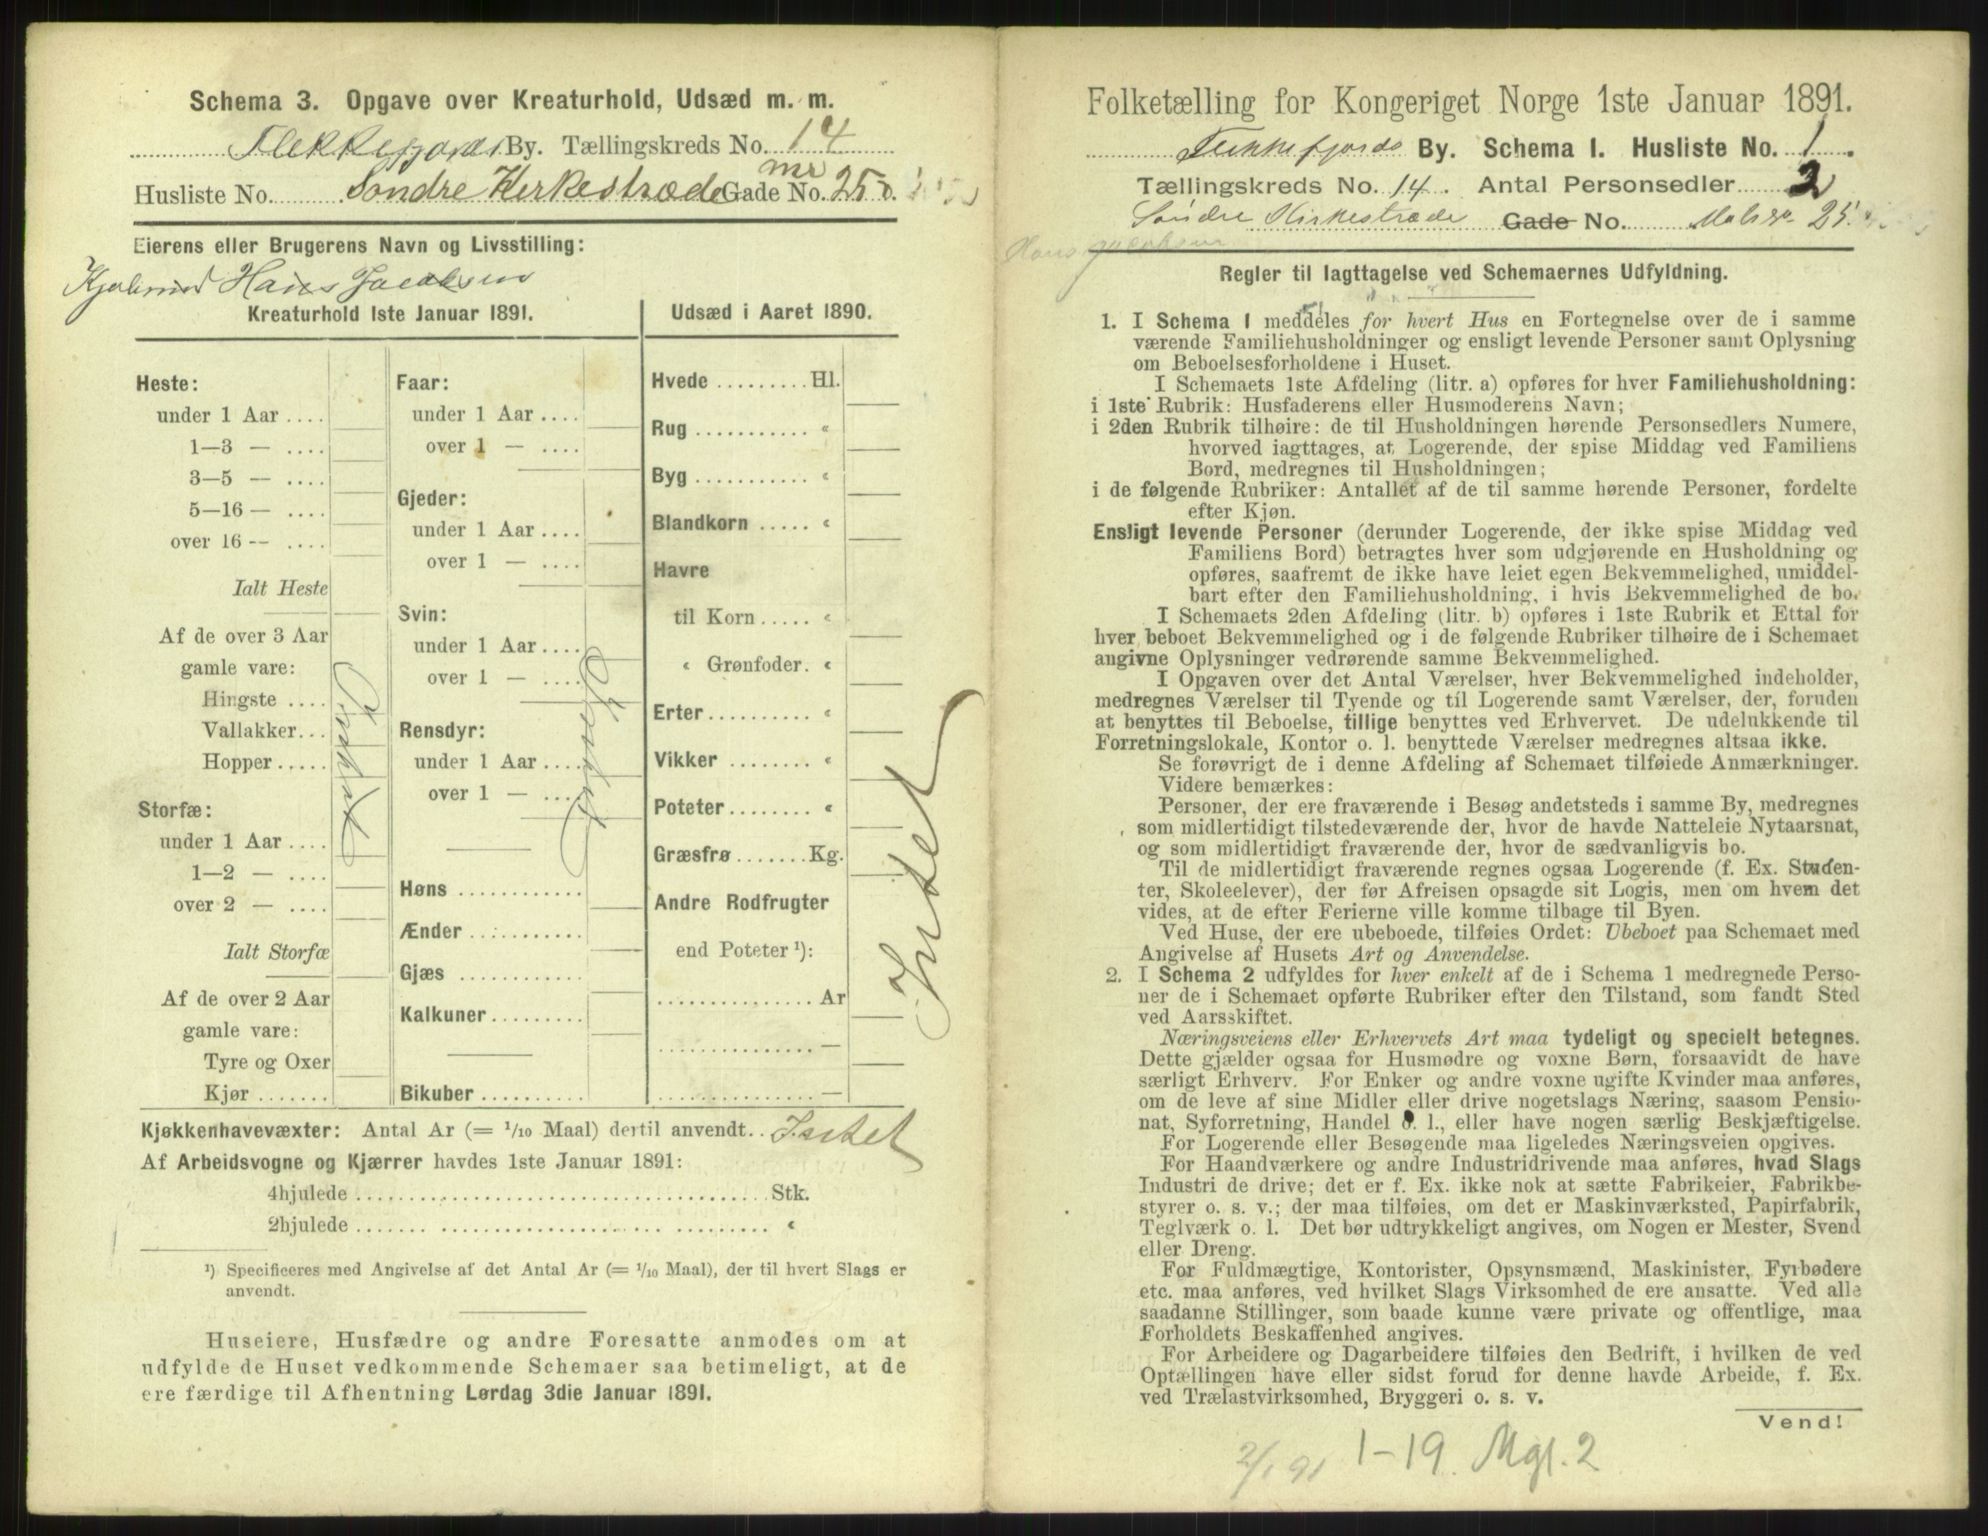 Schema 3. Opgave over Kreaturhold, Udsæd m. m.
Flekkefjords By. Tællingskreds No. 14
Husliste No. Søndre Kirkestræde Gade No. 25
Eierens eller Brugerens Navn og Livsstilling:
Hans Jacobsen
Kreaturhold 1ste Januar 1891.
Heste:
under 1 Aar ....
1—3 — ....
3—5 — ....
5—16 — ....
over 16 — ....
Ialt Heste
Af de over 3 Aar
gamle vare:
Hingste ....
Vallakker...
Hopper .....
Storfæ:
under 1 Aar ....
1—2 — ....
over 2 — ....
Ialt Storfæ
Af de over 2 Aar
gamle vare:
Tyre og Oxer
Kjør .......
Intet
Faar:
under 1 Aar ....
over 1 — ....
Gjeder:
under 1 Aar ....
over 1 — ....
Svin:
under 1 Aar ....
over 1 — ....
Rensdyr:
under 1 Aar ....
over 1 — ....
Høns ...........
Ænder ..........
Gjæs ...........
Kalkuner.........
Bikuber ..........
Intet
Udsæd i Aaret 1890.
Hvede ......... Hl.
Rug ........... "
Byg ........... "
Blandkorn ..... "
Havre
til Korn ..... "
" Grønfoder. "
Erter.......... "
Vikker ........ "
Poteter ........ "
Græsfrø ....... Kg.
Andre Rodfrugter
end Poteter ¹):
............... Ar
............... —
............... —
Intet
Kjøkkenhavevæxter: Antal Ar (= 1/10 Maal) dertil anvendt.. Intet
Af Arbeidsvogne og Kjærrer havdes 1ste Januar 1891:
4hjulede ........................................ Stk.
2hjulede ........................................ "
¹) Specificeres med Angivelse af det Antal Ar (= 1/10 Maal), der til hvert Slags er
anvendt.
Huseiere, Husfædre og andre Foresatte anmodes om at
udfylde de Huset vedkommende Schemaer saa betimeligt, at de
ere færdige til Afhentning Lørdag 3die Januar 1891.
Folketælling for Kongeriget Norge 1ste Januar 1891.
Flekkefjords By. Schema I. Husliste No. 1.
Tællingskreds No. 14. Antal Personsedler 2
Søndre Kirkestræde Gade No. Matr. no 25.
Hans Jacobsen
Regler til Iagttagelse ved Schemaernes Udfyldning.
1. I Schema 1 meddeles for hvert Hus en Fortegnelse over de i samme
værende Familiehusholdninger og ensligt levende Personer samt Oplysning
om Beboelsesforholdene i Huset.
I Schemaets 1ste Afdeling (litr. a) opføres for hver Familiehusholdning:
i 1ste Rubrik: Husfaderens eller Husmoderens Navn;
i 2den Rubrik tilhøire: de til Husholdningen hørende Personsedlers Numere,
hvorved iagttages, at Logerende, der spise Middag ved Familiens
Bord, medregnes til Husholdningen;
i de følgende Rubriker: Antallet af de til samme hørende Personer, fordelte
efter Kjøn.
Ensligt levende Personer (derunder Logerende, der ikke spise Middag ved
Familiens Bord) betragtes hver som udgjørende en Husholdning og
opføres, saafremt de ikke have leiet egen Bekvemmelighed, umiddel-
bart efter den Familiehusholdning, i hvis Bekvemmelighed de bo.
I Schemaets 2den Afdeling (litr. b) opføres i 1ste Rubrik et Ettal for
hver beboet Bekvemmelighed og i de følgende Rubriker tilhøire de i Schemaet
angivne Oplysninger vedrørende samme Bekvemmelighed.
I Opgaven over det Antal Værelser, hver Bekvemmelighed indeholder,
medregnes Værelser til Tyende og til Logerende samt Værelser, der, foruden
at benyttes til Beboelse, tillige benyttes ved Erhvervet. De udelukkende til
Forretningslokale, Kontor o. l. benyttede Værelser medregnes altsaa ikke.
Se forøvrigt de i denne Afdeling af Schemaet tilføiede Anmærkninger.
Videre bemærkes:
Personer, der ere fraværende i Besøg andetsteds i samme By, medregnes
som midlertidigt tilstedeværende der, hvor de havde Natteleie Nytaarsnat,
og som midlertidigt fraværende der, hvor de sædvanligvis bo.
Til de midlertidigt fraværende regnes ogsaa Logerende (f. Ex. Studen-
ter, Skoleelever), der før Afreisen opsagde sit Logis, men om hvem det
vides, at de efter Ferierne ville komme tilbage til Byen.
Ved Huse, der ere ubeboede, tilføies Ordet: Ubeboet paa Schemaet med
Angivelse af Husets Art og Anvendelse.
2. I Schema 2 udfyldes for hver enkelt af de i Schema 1 medregnede Perso-
ner de i Schemaet opførte Rubriker efter den Tilstand, som fandt Sted
ved Aarsskiftet.
Næringsveiens eller Erhvervets Art maa tydeligt og specielt betegnes.
Dette gjælder ogsaa for Husmødre og voxne Børn, forsaavidt de have
særligt Erhverv. For Enker og andre voxne ugifte Kvinder maa anføres,
om de leve af sine Midler eller drive nogetslags Næring, saasom Pensio-
nat, Syforretning, Handel o. l., eller have nogen særlig Beskjæftigelse.
For Logerende eller Besøgende maa ligeledes Næringsveien opgives.
For Haandværkere og andre Industridrivende maa anføres, hvad Slags
Industri de drive; det er f. Ex. ikke nok at sætte Fabrikeier, Fabrikbe-
styrer o. s. v.; der maa tilføies, om det er Maskinværksted, Papirfabrik,
Teglværk o. l. Det bør udtrykkeligt angives, om Nogen er Mester, Svend
eller Dreng.
For Fuldmægtige, Kontorister, Opsynsmænd, Maskinister, Fyrbødere
etc. maa anføres, ved hvilket Slags Virksomhed de ere ansatte. Ved alle
saadanne Stillinger, som baade kunne være private og offentlige, maa
Forholdets Beskaffenhed angives.
For Arbeidere og Dagarbeidere tilføies den Bedrift, i hvilken de ved
Optællingen have eller sidst forud for denne havde Arbeide, f. Ex.
ved Trælastvirksomhed, Bryggeri o. s. v.
Vend!
2/1 91 1-19. Mgl. 2